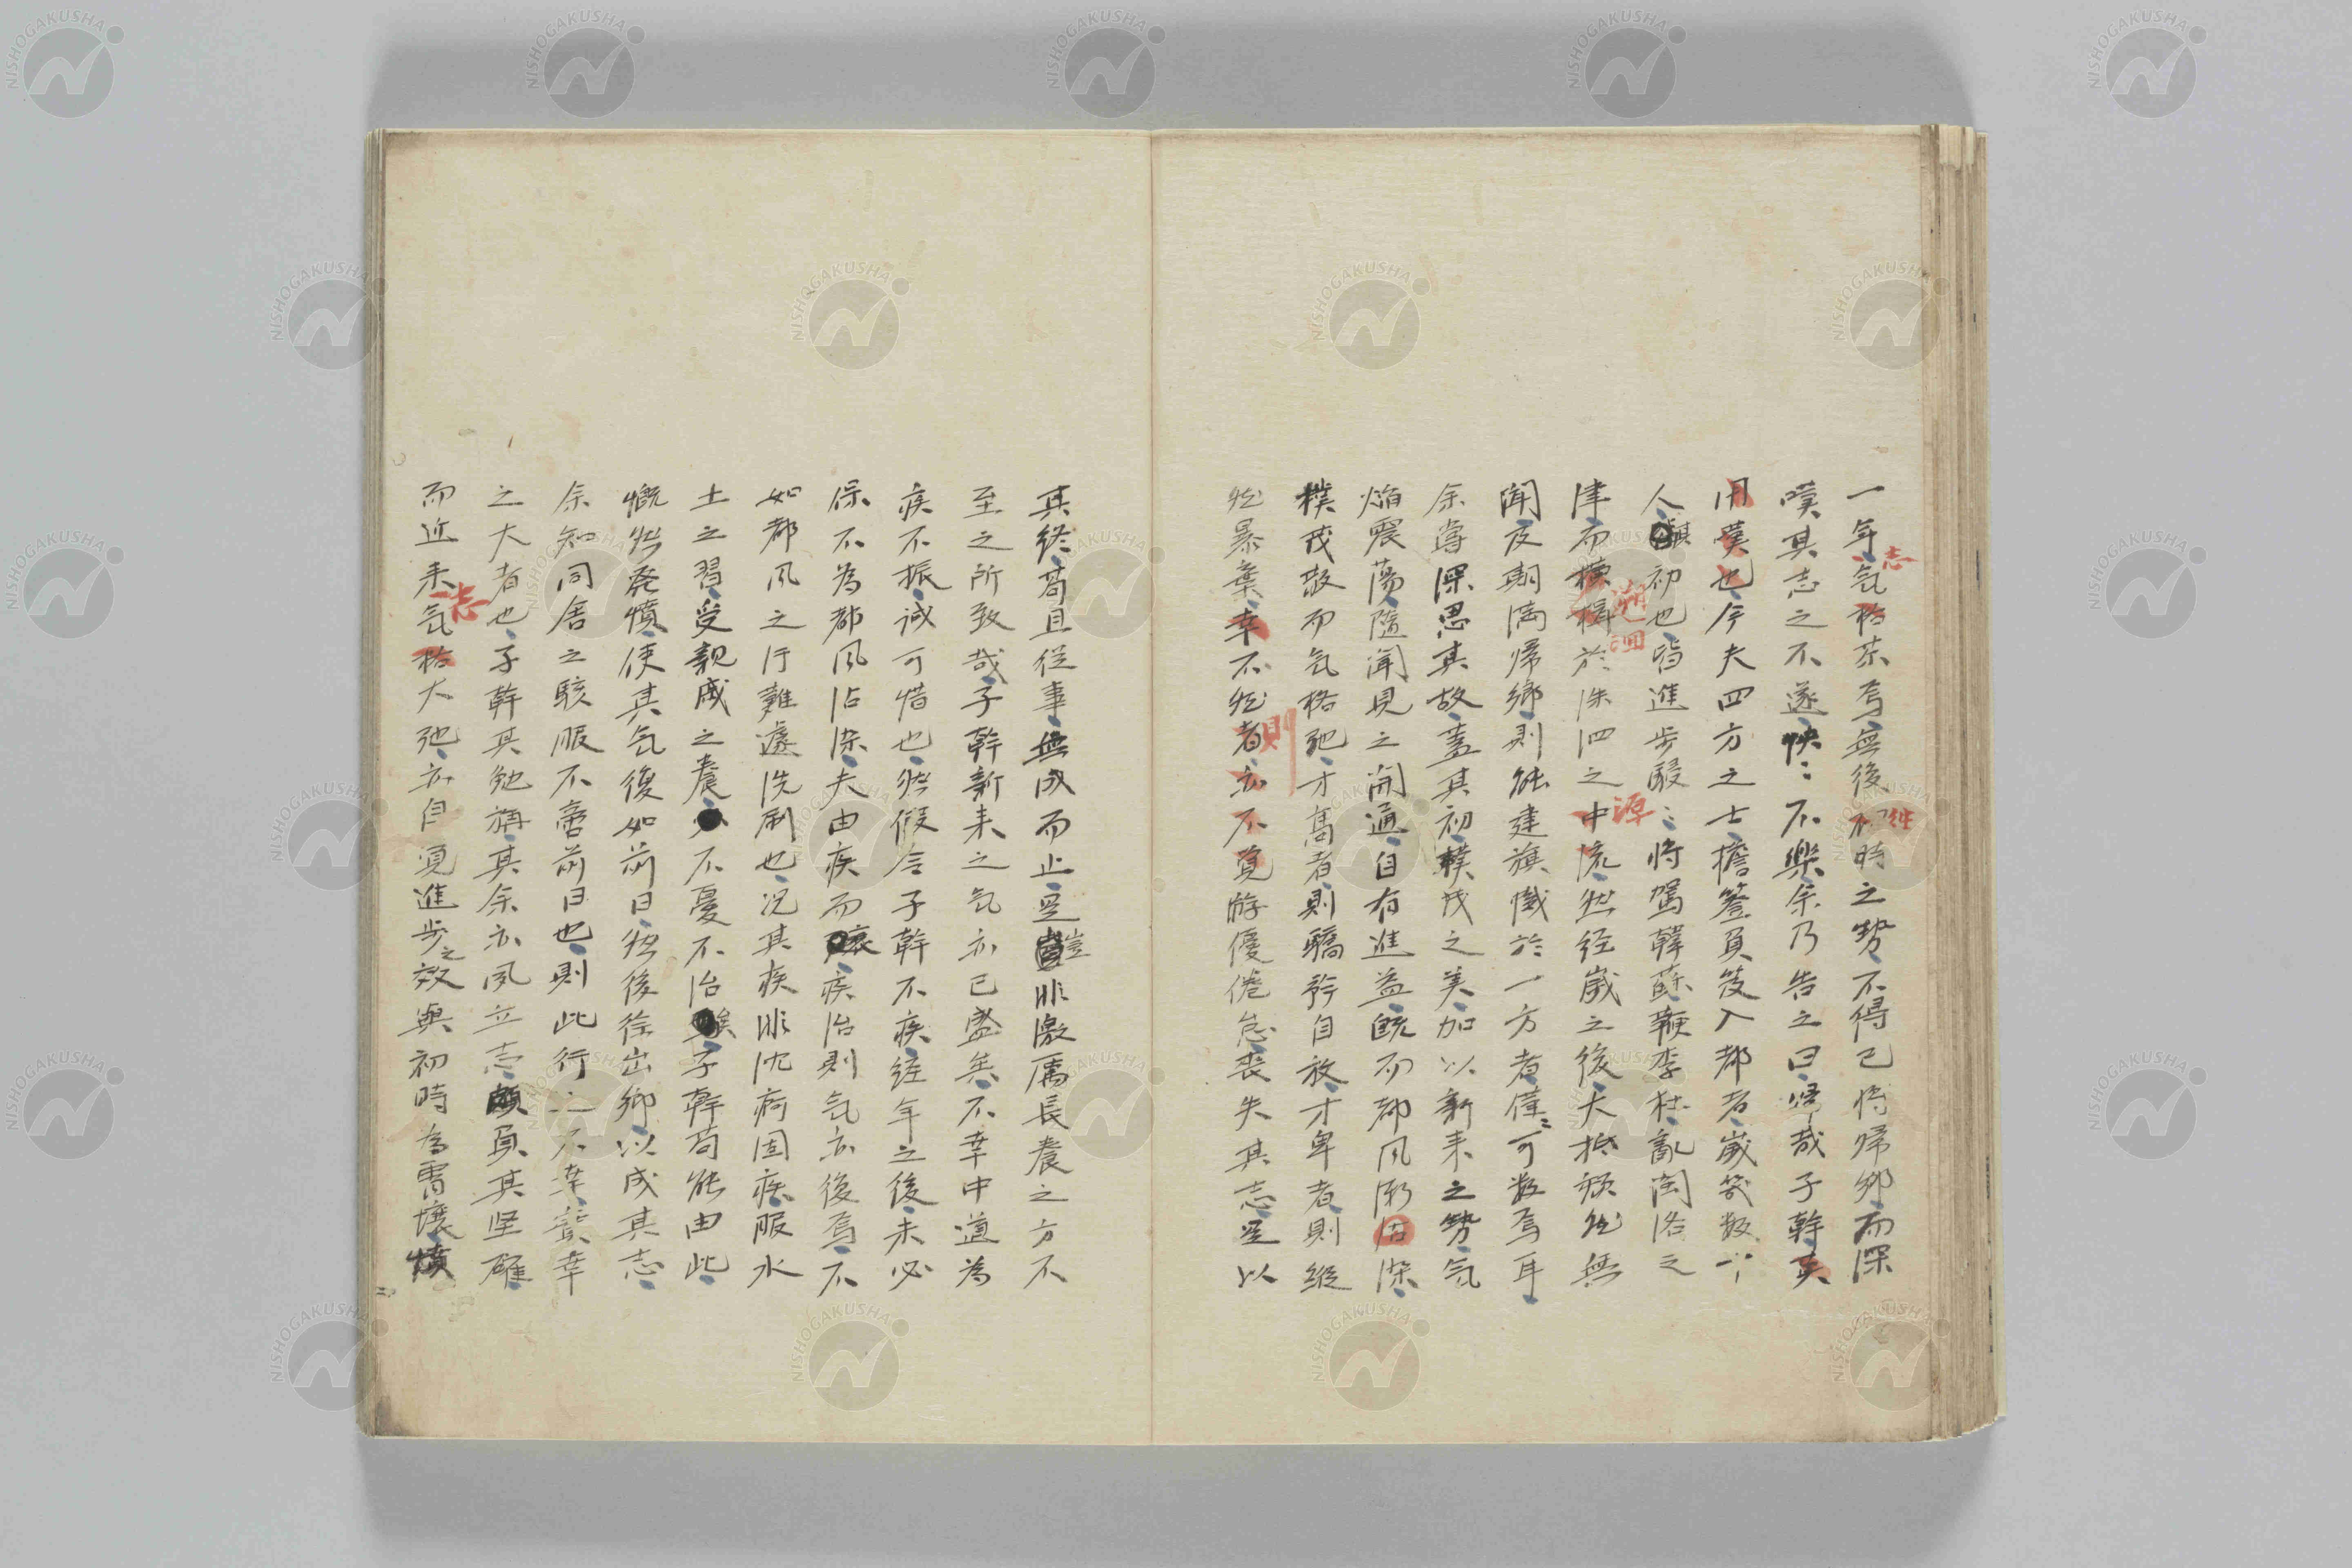 一年氣格茶焉無後初時之勢不得已将帰郷而深
嘆其志之不遂怏〻不樂余乃告之曰嘻哉子幹莫
用嘆也今夫四方之士擔簦負笈入都者歳数
人其初也皆進歩駸〻将駕韓蘇鞭李杜乱閩洛之
津而横楫於洙泗之中流然経歳之後大抵頽然無
聞及期満帰郷則能建旗幟於一方者僅〻可数焉耳
余嘗深思其故蓋其初樸茂之美加以新来之勢氣
焔震蕩隨聞見之開通自有進益既而都風漸沾染
樸茂散而氣格弛才高者則驕矜自放才卑者則縦
然暴棄幸不然者亦不覚游優倦怠喪失其志是以
其終苟且従事無成而止是豈非激厲長養之方不
至之所致哉子幹新来之氣亦已盛矣不幸中道為
疾不振誠可惜也然假令子幹不疾経年之後未必
保不為都風沾染夫由疾而壊疾治則氣亦復焉不
如都風之行難遽洗刷也況其疾非沈痾固疾服水
土之習受親戚之養不憂不治子幹苟能由此
慨然発憤使其氣復如前日然後徐出郷以成其志
余知同舎之駭服不啻前日也則此行之不幸實幸
之大者也子幹其勉旃其余亦夙立志頗負其堅確
而近来氣格大弛亦自覚進歩之效與初時為霄壤憤
志
継
遡洄
源
則
志